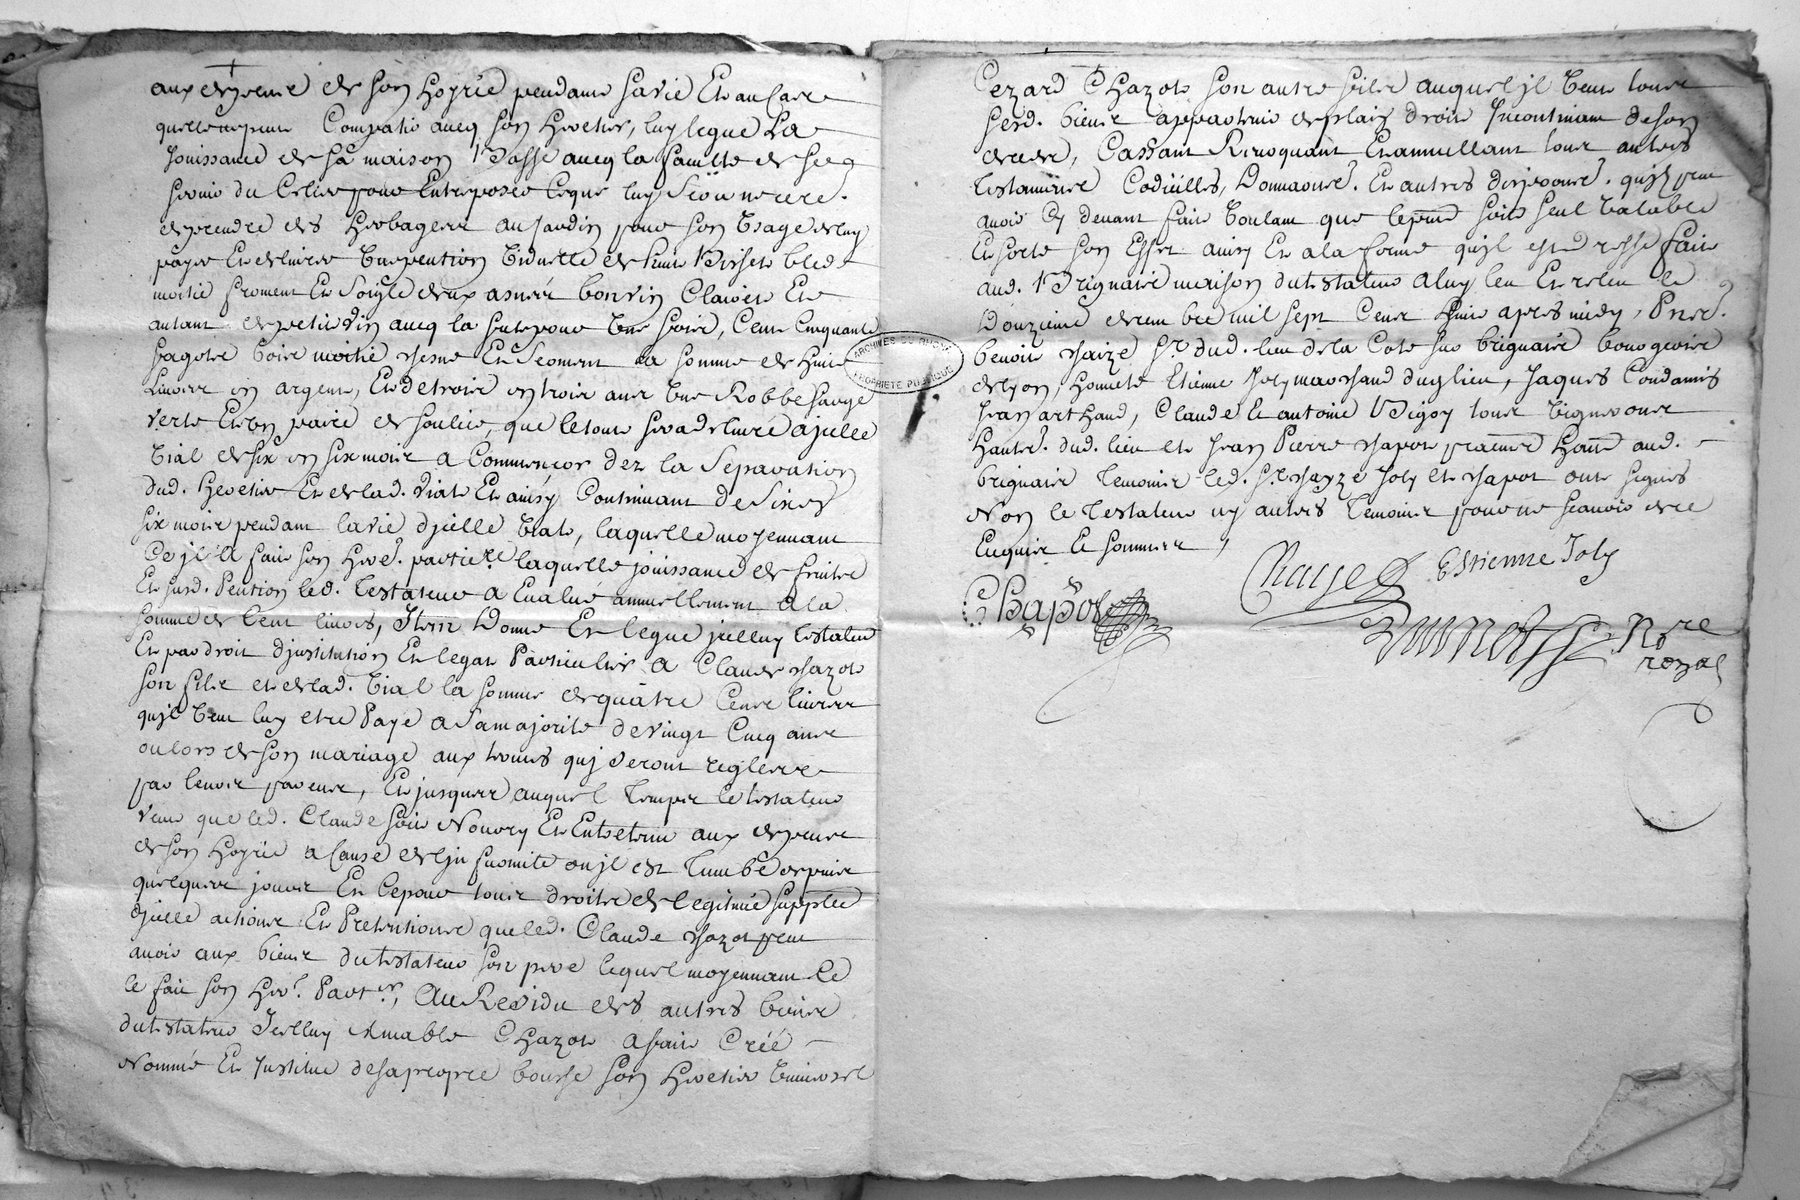 aux depens de son hoyrie pendant sa vie Et au Cas
quelle ne peut Compatir avecq son heretier, luy legue La
Jouissance de sa maison Basse avecq la faculté de se
servir du Celier pour Entreposer Ceque luy
deprendre des herbages au Jardin pour son Usage de luy
payer Et delivrer Une pention Viduelle de huit Bichets bled
moitié froment Et Soigle deux asnées bon vin Clairet Et
autant de petit vin avecq la futte pour Une fois, Cent Cinquante
fagots bois moitié chesne Et Seoment la somme de huit
Livres en argent, Et de trois en trois ans Une Robbe sarge
verte Et Un paire de soulier, que le tout sera delivré a jcelle
Vial de six en six mois a Commencer dez la Separation
dud. heretier Et de lad. Vial Et ainsy Continuant de Six en
six mois pendant la vie djcelle Vial, laquelle moyennant
Ce jl a fait son here. partie.re laquelle jouissance de fruits
Et susd. Pention led. Testateur a Evalué annuellement a la
somme de Cent livres, Item Donne Et legue jcelluy testateur
Et par droit djnstitution Et legat Particulier a Claude Chazot
son fils et de lad. Vial la somme de quatre Cens livres
qujl veut luy etre Payé a Sa majorité de vingt Cinq ans
ou lors de son mariage aux termes quj seront regless
par leurs parens, Et jusques auquel temps le testateur
veut que led. Claude soit Noury Et Entretenu aux depens
de son hoyrie a Cause de ljnfirmité ou jl est Tumbé depuis
quelques jours Et Ce pour tous droits de legitime supplée
djcelle actions Et Pretentions que led. Claude Chazot peut
avoir aux biens du testateur son pere lequel moyennant Ce
le fait son her. Part.er, Au Residu des autres biens
du testateur Jcelluy Amable Chazot a fait Créé
Nommé Et Institué de sa propre bouche son heretier Universel
Cezard Chazot son autre fils auquel jl veut tous
sesd. biens appartenir de plain droit Incontinant de son
deces, Cassant Revoquant Et annullant tous autres
Testaments Codicilles, Donnaons. Et autres disposons. qujl peut
avoir Cy devant fait Voulant que le pnt soit seul Valable
Et sorte son Effet ainsy Et a la forme qujl est d resse fait
aud. Brignais maison du testateur a luy leu Et releu le
Douzieme decembre mil sept Cens huit apres midy, Pnts.
benoit Chaize Sr. dud. lieu de la Cote sur brignais bourgeois
de lyon, honneste Etienne Joly marchand dud lieu, Jaques Condamin
Jean arthaud, Claude et antoine Bigoy tous Vignerons
habts. dud. lieu et Jean Pierre Chapot habt aud.
brignais temoins led. Sr. Chayze Joly et Chapot ont signés
Non le Testateur ny autres Temoins pour ne scavoir de ce
Enquis Et sommés,
Chaize Estienne Joly
Chapot
Nre
royal
ARCHIVES DU RHONE
PROPRIETE PUBLIQUE